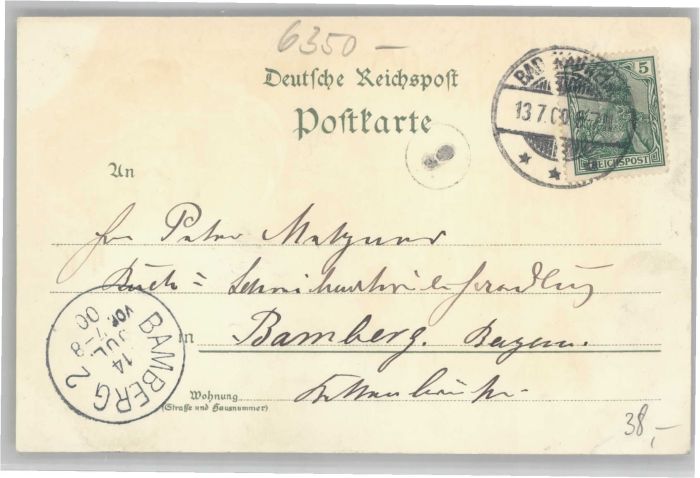 6350 —
Deutsche Reichspost
Postkarte
BAD
13 7.00
5
REICHSPOST
An
Peter Metzner
Buch =
in Bamberg. Bayern.
Wohnung
(Straße und Hausnummer)
BAMBERG 2
14 JUL. 00
VOR. 7-8
38,-